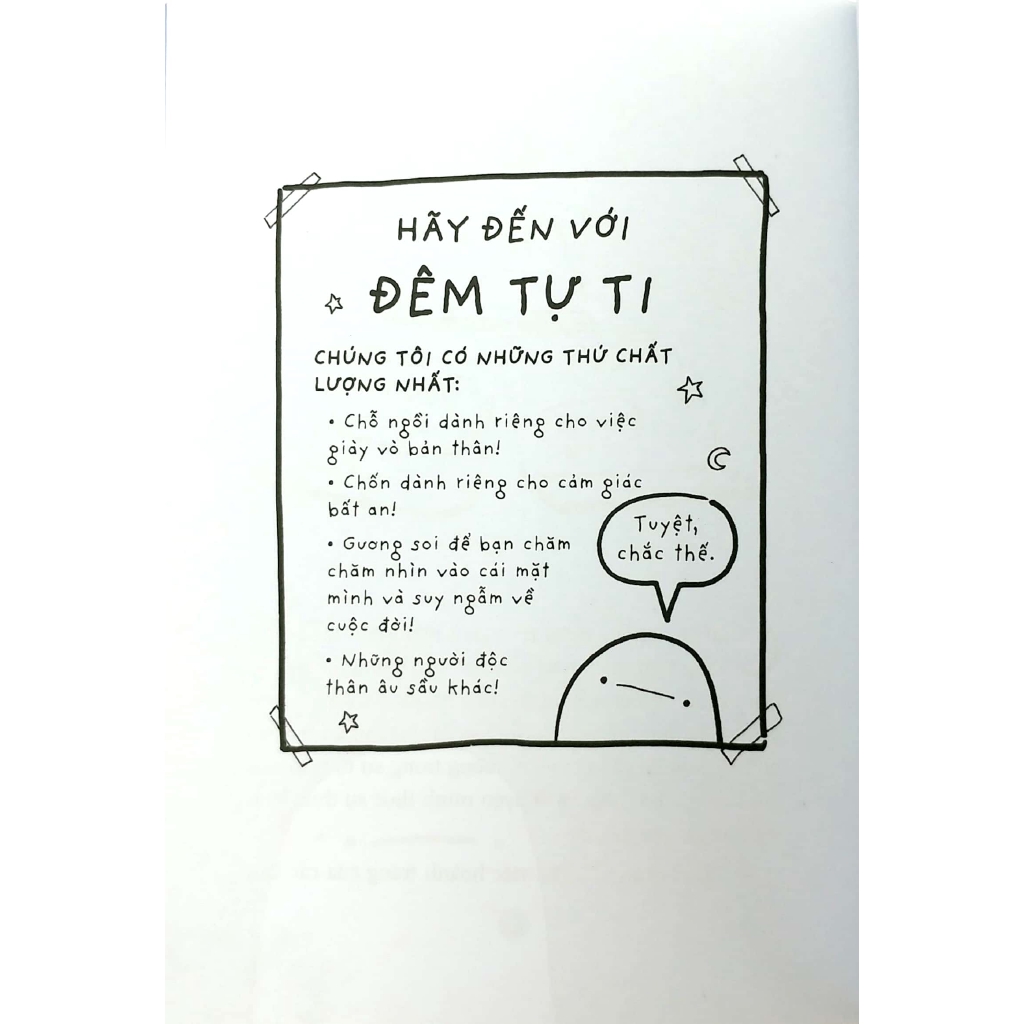 HÃY ĐẾN VỚI
ĐÊM TỰ TI
CHÚNG TÔI CÓ NHỮNG THỨ CHẤT
LƯỢNG NHẤT:
• Chỗ ngồi dành riêng cho việc
giày vò bản thân!
• Chốn dành riêng cho cảm giác
bất an!
• Gương soi để bạn chăm
chăm nhìn vào cái mặt
mình và suy ngẫm về
cuộc đời!
• Những người độc
thân âu sầu khác!
Tuyệt,
chắc thế.